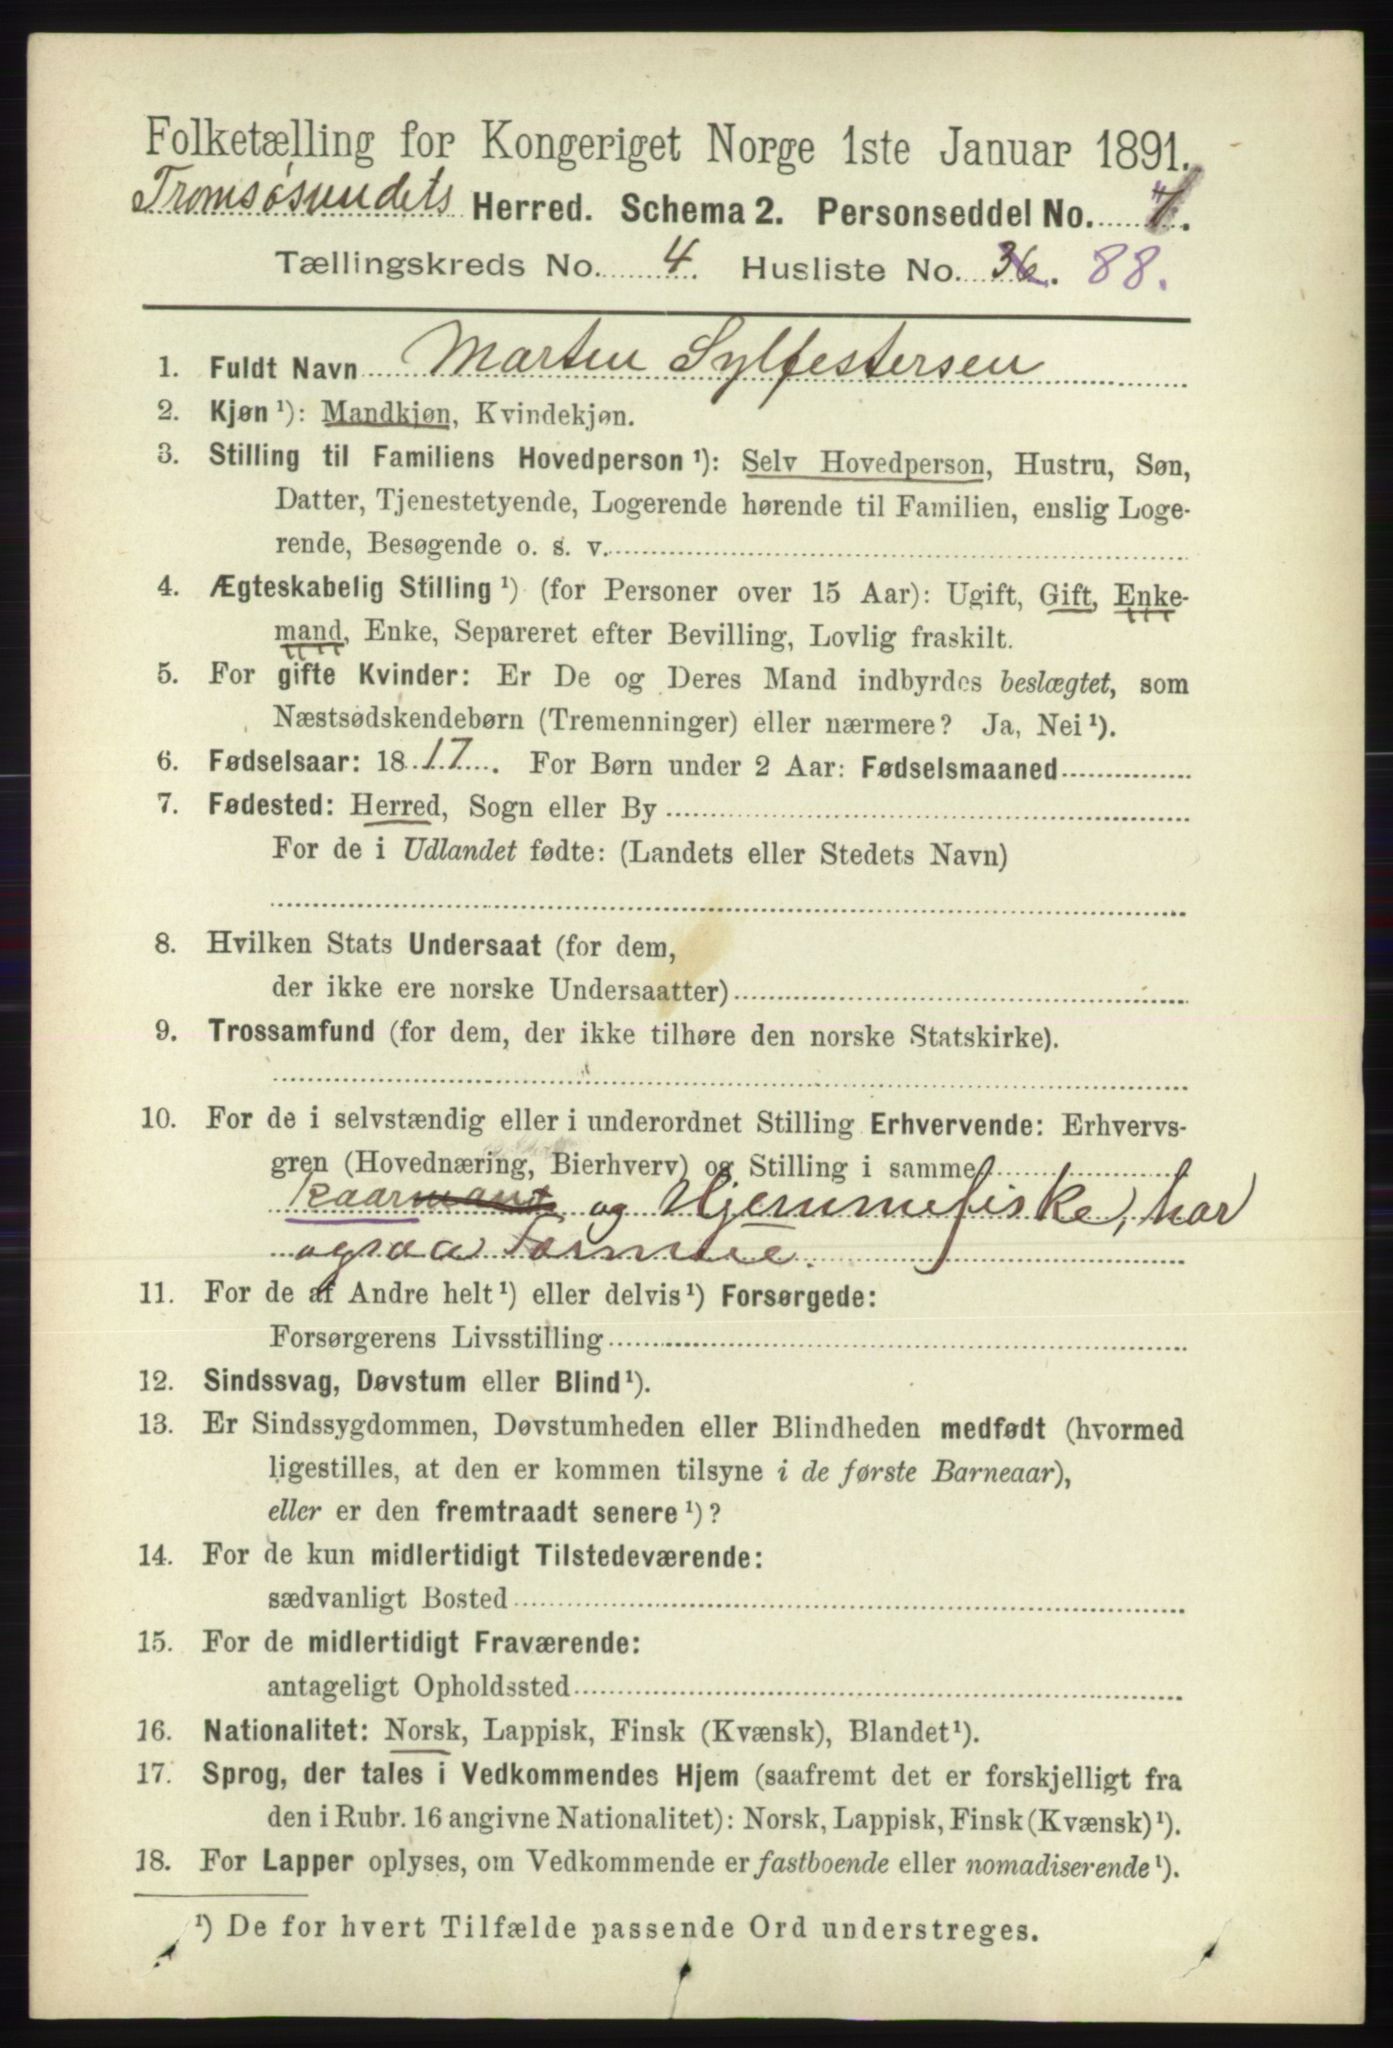 Folketælling for Kongeriget Norge 1ste Januar 1891.
Tromsøsundets Herred. Schema 2. Personseddel No. 4.
Tællingskreds No. 4. Husliste No. 36. 88.
1. Fuldt Navn Martin Sylfestersen
2. Kjøn ¹): Mandkjøn, Kvindekjøn.
3. Stilling til Familiens Hovedperson ¹): Selv Hovedperson, Hustru, Søn,
Datter, Tjenestetyende, Logerende hørende til Familien, enslig Loge-
rende, Besøgende o. s. v.
4. Ægteskabelig Stilling ¹) (for Personer over 15 Aar): Ugift, Gift, Enke-
mand, Enke, Separeret efter Bevilling, Lovlig fraskilt.
5. For gifte Kvinder: Er De og Deres Mand indbyrdes beslægtet, som
Næstsødskendebørn (Tremenninger) eller nærmere? Ja, Nei ¹).
6. Fødselsaar: 1817. For Børn under 2 Aar: Fødselsmaaned
7. Fødested: Herred, Sogn eller By
For de i Udlandet fødte: (Landets eller Stedets Navn)
8. Hvilken Stats Undersaat (for dem,
der ikke ere norske Undersaatter)
9. Trossamfund (for dem, der ikke tilhøre den norske Statskirke).
10. For de i selvstændig eller i underordnet Stilling Erhvervende: Erhvervs-
gren (Hovednæring, Bierhverv) og Stilling i samme
kaarmand og Hjemmefiske, har
ogsaa
11. For de af Andre helt ¹) eller delvis ¹) Forsørgede:
Forsørgerens Livsstilling
12. Sindssvag, Døvstum eller Blind ¹).
13. Er Sindssygdommen, Døvstumheden eller Blindheden medfødt (hvormed
ligestilles, at den er kommen tilsyne i de første Barneaar),
eller er den fremtraadt senere ¹)?
14. For de kun midlertidigt Tilstedeværende:
sædvanligt Bosted
15. For de midlertidigt Fraværende:
antageligt Opholdssted
16. Nationalitet: Norsk, Lappisk, Finsk (Kvænsk), Blandet ¹).
17. Sprog, der tales i Vedkommendes Hjem (saafremt det er forskjelligt fra
den i Rubr. 16 angivne Nationalitet): Norsk, Lappisk, Finsk (Kvænsk) ¹).
18. For Lapper oplyses, om Vedkommende er fastboende eller nomadiserende ¹).
¹) De for hvert Tilfælde passende Ord understreges.